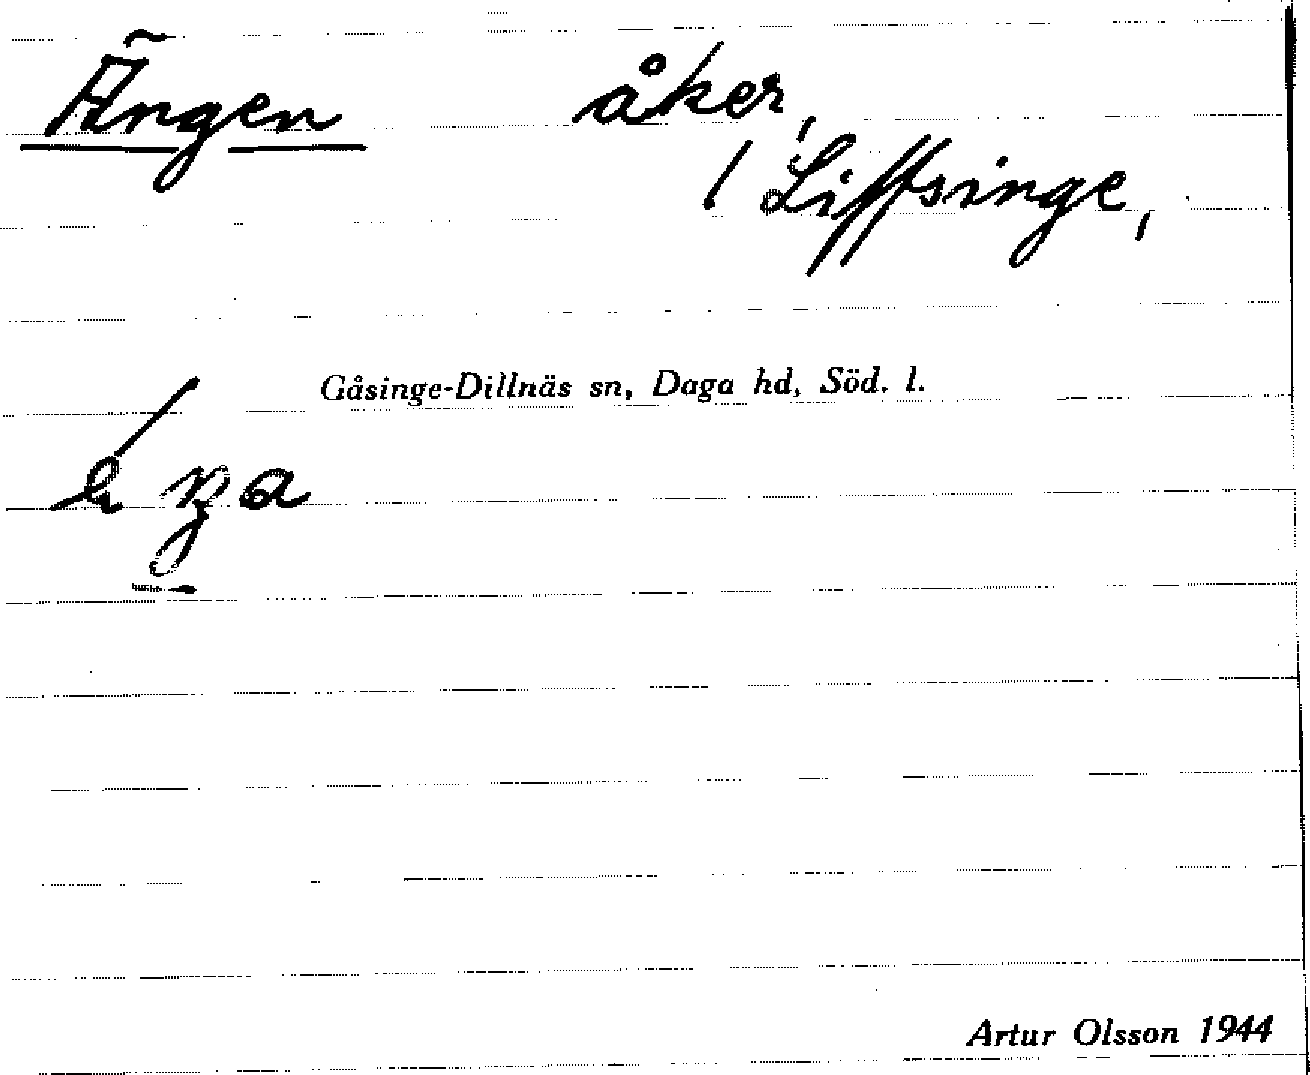 Ängen åker,
/ Liffsinge,
Gåsinge-Dillnäs sn, Daga hd, Söd. l.
Artur Olsson 1944